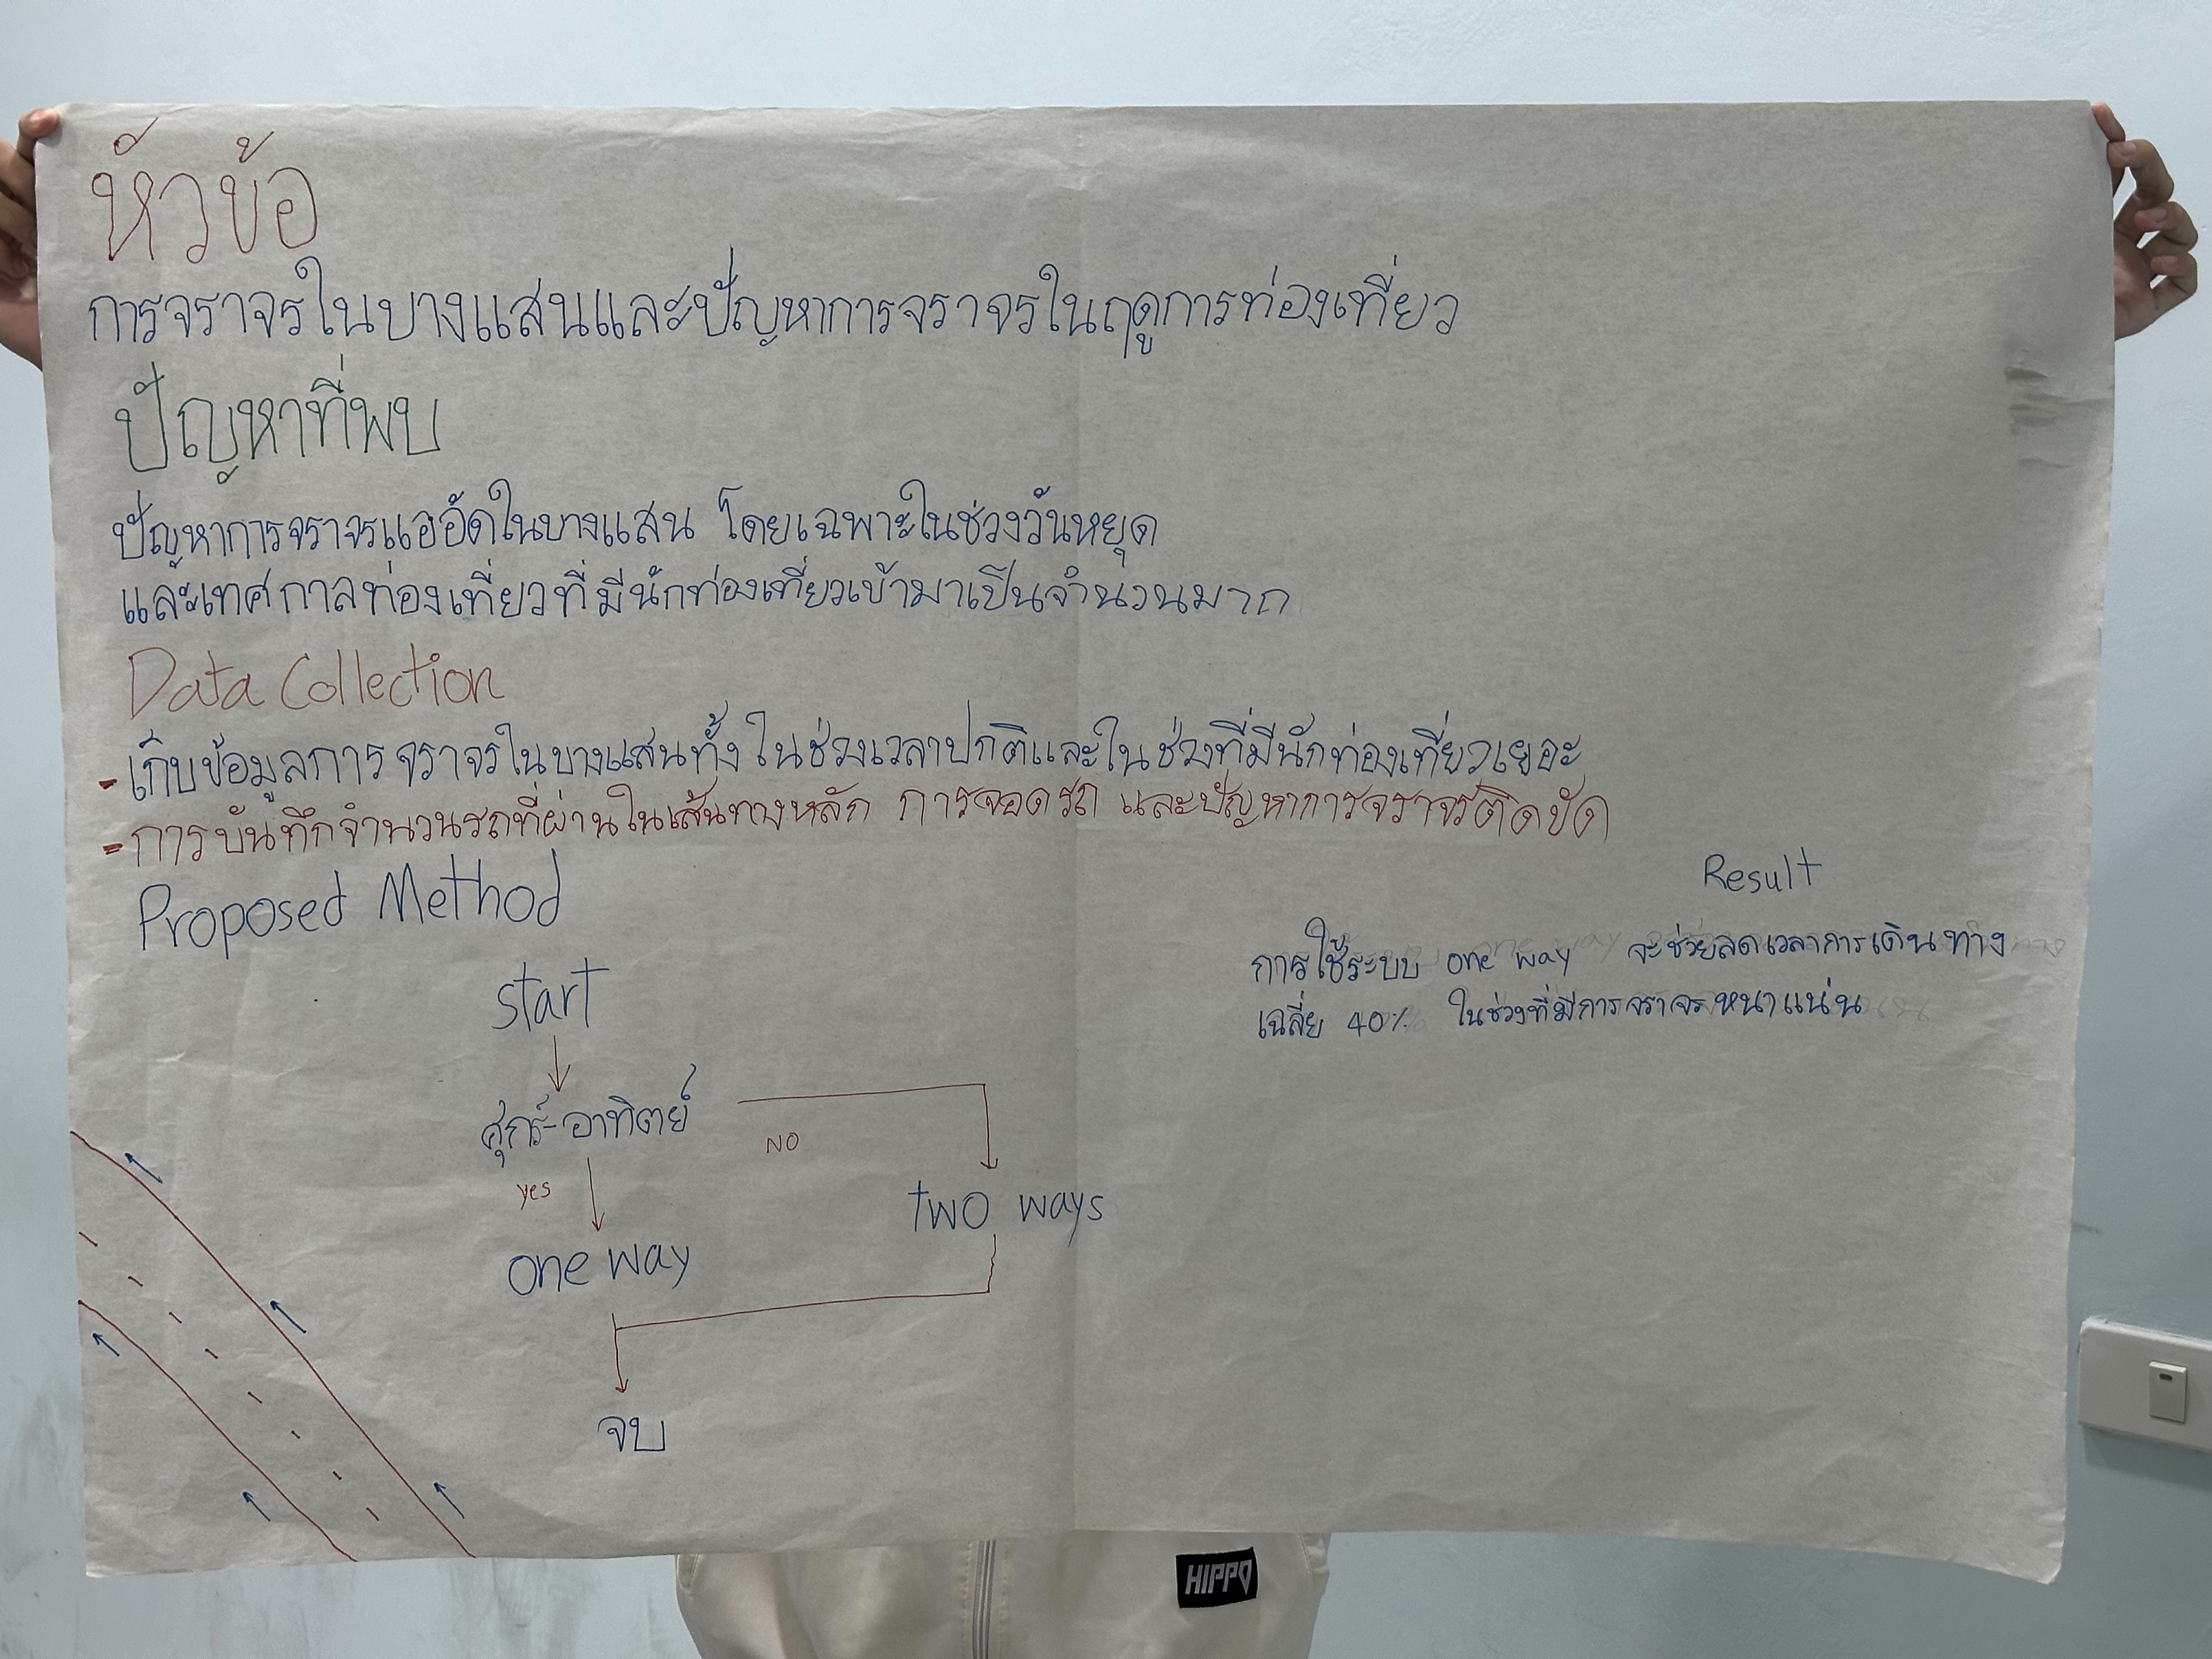 หัวข้อ
การจราจรในบางแสนและปัญหาการจราจรในฤดูการท่องเที่ยว
ปัญหาที่พบ
ปัญหาการจราจรแออัดในบางแสน โดยเฉพาะในช่วงวันหยุด
และเทศกาลท่องเที่ยวที่มีนักท่องเที่ยวเข้ามาเป็นจำนวนมาก
Data Collection
- เก็บข้อมูลการจราจรในบางแสนทั้งในช่วงเวลาปกติและในช่วงที่มีนักท่องเที่ยวเยอะ
- การบันทึกจำนวนรถที่ผ่านในเส้นทางหลัก การจอดรถ และปัญหาการจราจรติดขัด
Proposed Method
start
ศุกร์-อาทิตย์
NO
yes
two ways
one way
จบ
Result
การใช้ระบบ one way จะช่วยลดเวลาการเดินทาง
เฉลี่ย 40% ในช่วงที่มีการจราจรหนาแน่น
HIPPO